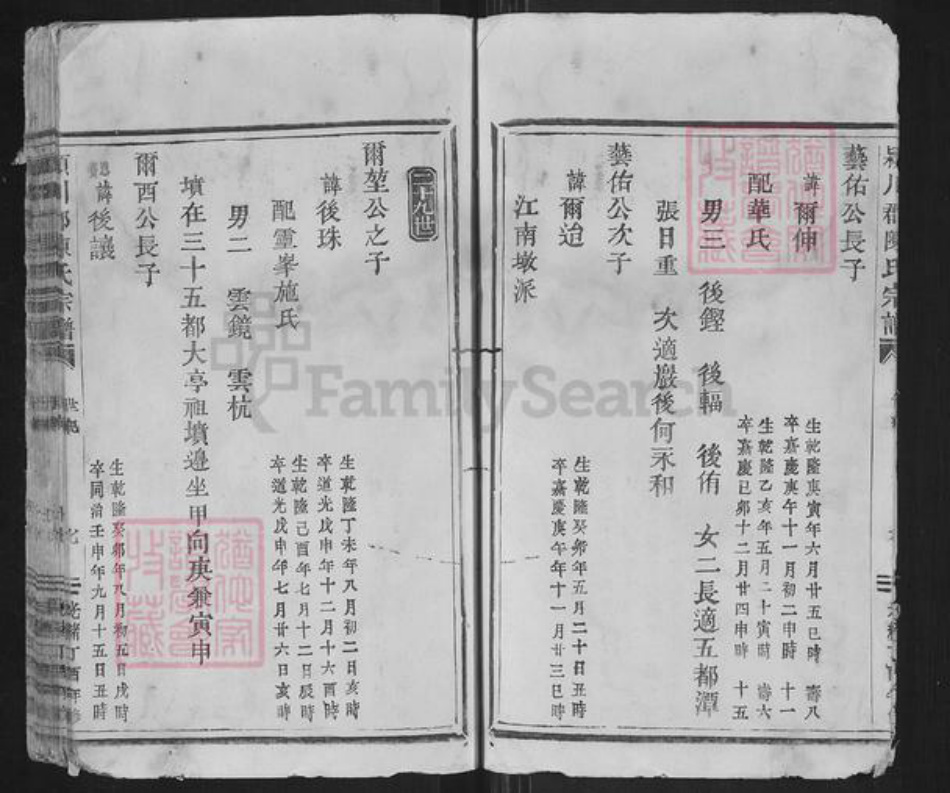 藝佑公長子
諱爾伸 生乾隆庚寅年六月廿五巳時 壽八十一
卒嘉慶庚午十一月初二申時
配華氏 生乾隆乙亥年五月二十寅時 壽六十五
卒嘉慶己卯十二月廿四申時
男三 後鏗 後輻 後侑 女二長適五都潭
張日重 次適嚴後何永和
藝佑公次子
諱爾迨 生乾隆癸卯年五月二十日丑時
卒嘉慶庚午年十一月廿三巳時
江南墩派
三九世
爾堃公之子
諱後珠 生乾隆丁未年八月初二日亥時
卒道光戊申年十二月十六酉時
配靈峯施氏 生乾隆己酉年七月十二日辰時
卒道光戊申年七月廿六日亥時
男二 雲鏡 雲杭
墳在三十五都大亭祖墳邊坐甲向庚兼寅申
爾西公長子
諱後讓 生乾隆癸卯年八月初五日戌時
卒同治壬申年九月十五日丑時
潁川郡陳氏宗譜 世紀 光緒丁酉年修
FamilySearch